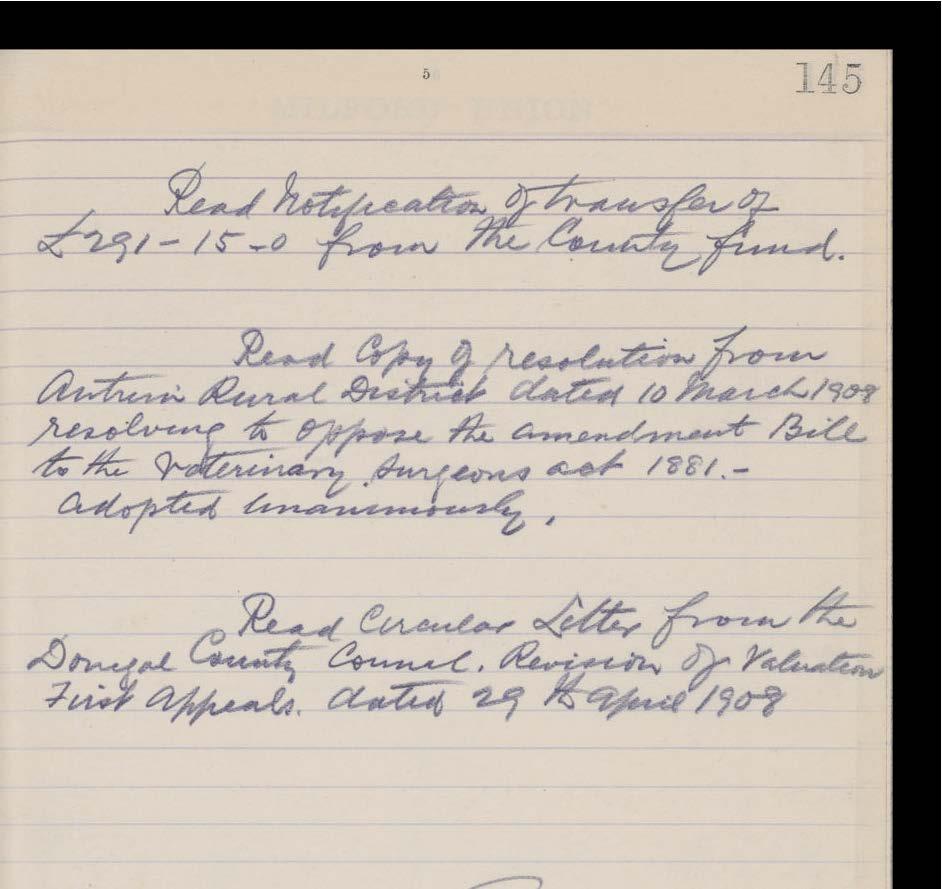 5
145
MILFORD UNION
Read Notification of transfer of
£291-15-0 from the County fund.
Read Copy of resolution from
Antrim Rural District dated 10 March 1908
resolving to oppose the amendment Bill
to the Veterinary Surgeons act 1881.-
adopted unanimously.
Read Circular Letter from the
Donegal County Council. Revision of Valuation
First Appeals. dated 29th April 1908